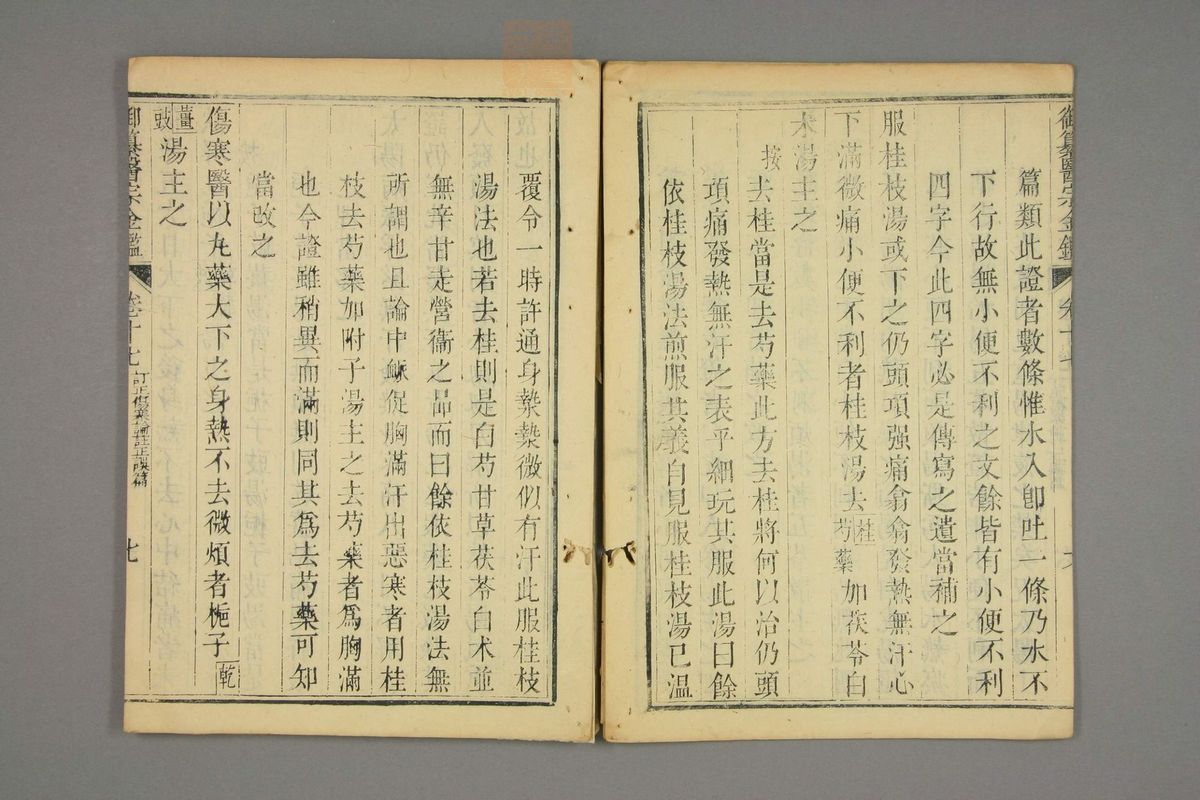 御纂醫宗金鑑
篇類此證者數條惟水入卽吐一條乃水不
下行故無小便不利之文餘皆有小便不利
四字今此四字必是傳寫之遺當補之
服桂枝湯或下之仍頭項强痛翕翕發熱無汗心
下滿微痛小便不利者桂枝湯去桂芍藥加茯苓白
朮湯主之
按去桂當是去芍藥此方去桂將何以治仍頭
項痛發熱無汗之表乎細玩其服此湯曰餘
依桂枝湯法煎服其義自見服桂枝湯已溫
覆令一時許通身漐漐微似有汗此服桂枝
湯法也若去桂則是白芍甘草茯苓白术並
無辛甘走營衞之品而曰餘依桂枝湯法無
所謂也且論中脈促胸滿汗出惡寒者用桂
枝去芍藥加附子湯主之去芍藥者爲胸滿
也今證雖稍異而滿則同其爲去芍藥可知
當改之
傷寒醫以丸藥大下之身熱不去微煩者梔子乾
薑豉湯主之
御纂醫宗金鑑 卷十七 訂正傷寒論註正誤篇 七